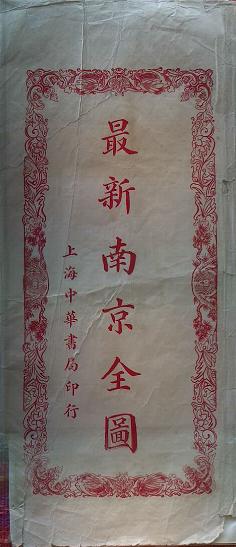 最新南京全圖
上海中華書局印行